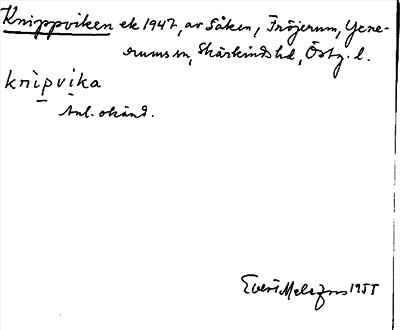 Knippviken ek 1947, av Såken, Fröjerum, Gene-
rums sn, Skärkinds hd, Östg. l.
knipvika
Anl. okänd.
Evert Melefors 1955